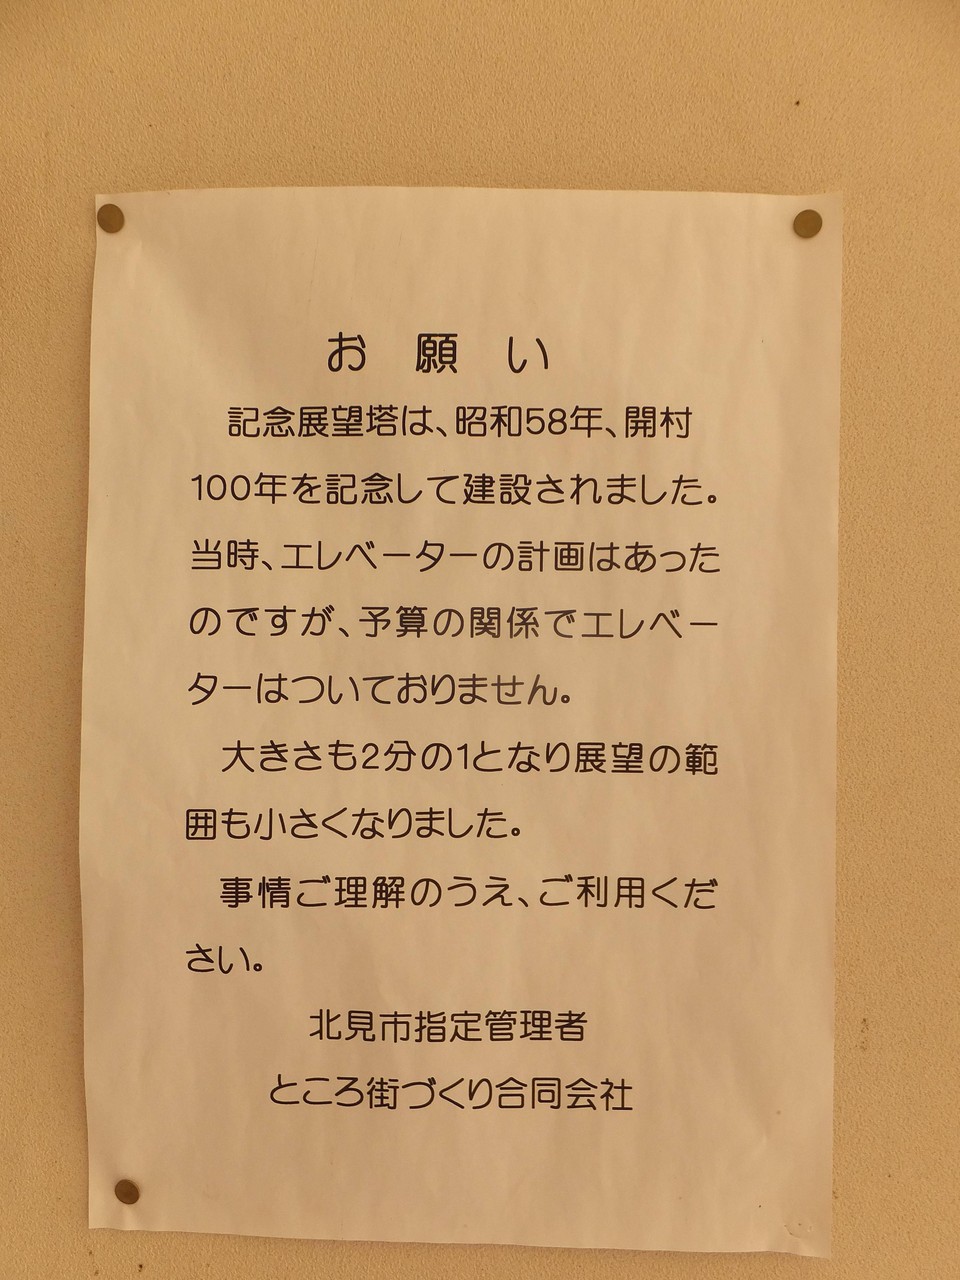 お願い
記念展望塔は、昭和58年、開村
100年を記念して建設されました。
当時、エレベーターの計画はあった
のですが、予算の関係でエレベー
ターはついておりません。
大きさも2分の1となり展望の範
囲も小さくなりました。
事情ご理解のうえ、ご利用くだ
さい。
北見市指定管理者
ところ街づくり合同会社